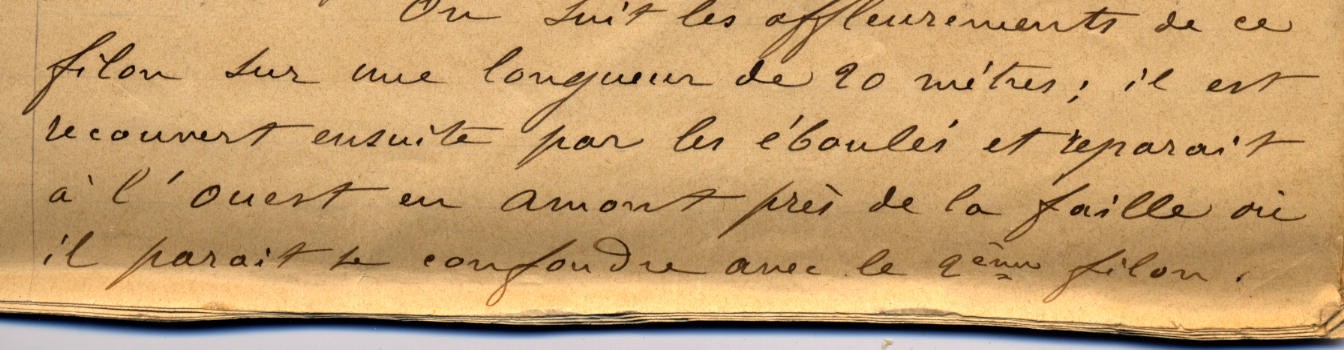 On suit les affleurements de ce
filon sur une longueur de 20 mètres ; il est
recouvert ensuite par les éboulés et reparait
à l'Ouest en Amont près de la faille où
il parait se confondre avec le 2ème filon.